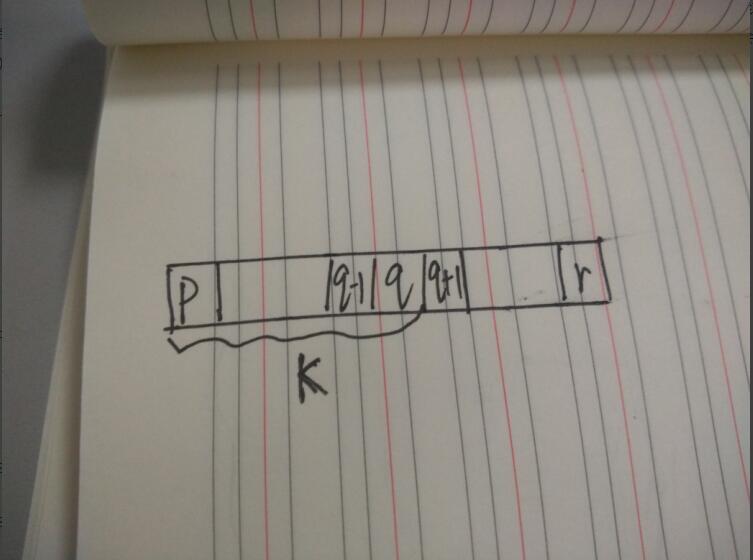 p q-1 q q+1 r
K